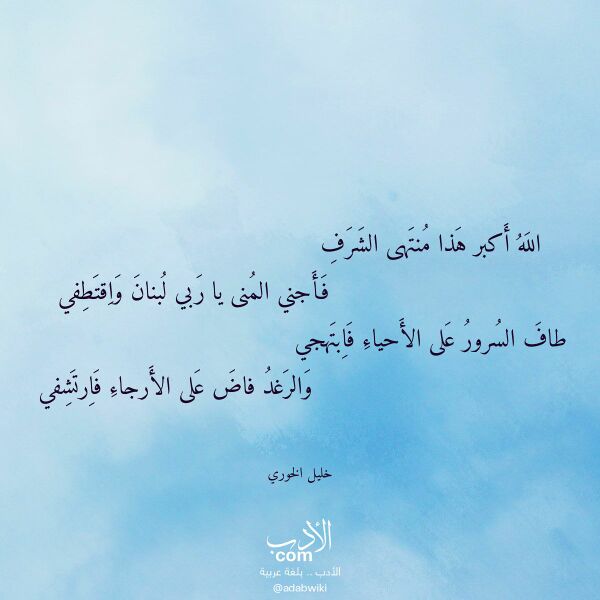 اللَهُ أَكبر هَذا مُنتَهى الشَرَفِ
فَأَجني المُنى يا رَبي لُبنانَ وَاِقتَطِفي
طافَ السُرورُ عَلى الأَحياءِ فَاِبتَهجي
وَالرَغدُ فاضَ عَلى الأَرجاءِ فَاِرتَشِفي
خليل الخوري
الأدب
com
الأدب .. بلغة عربية
@adabwiki